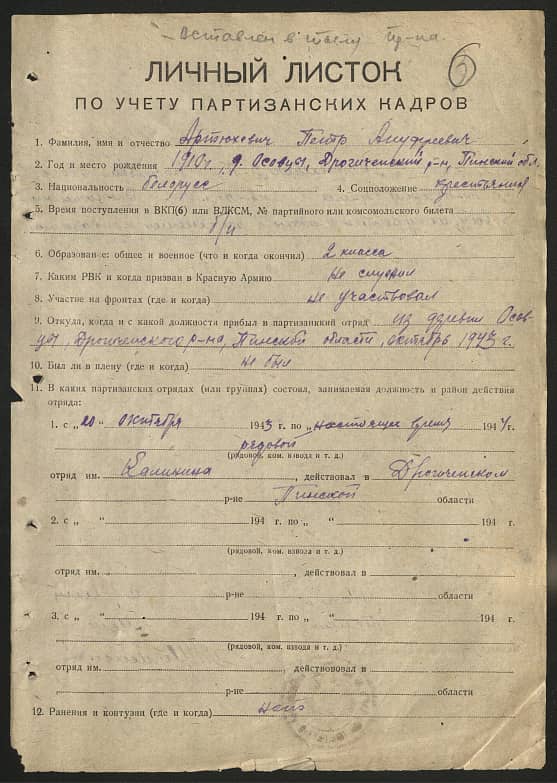 Оставлен в тылу пр-ка.
6
ЛИЧНЫЙ ЛИСТОК
ПО УЧЕТУ ПАРТИЗАНСКИХ КАДРОВ
1. Фамилия, имя и отчество Артюхович Петр Ануфреевич
2. Год и место рождения 1910 г. д. Осовцы, Дрогиченский р-н, Пинской обл.
3. Национальность белорусс 4. Соцположение крестьянин
5. Время поступления в ВКП(б) или ВЛКСМ, № партийного или комсомольского билета
б/п
6. Образование: общее и военное (что и когда окончил) 2 класса
7. Каким РВК и когда призван в Красную Армию не служил
8. Участие на фронтах (где и когда) не участвовал
9. Откуда, когда и с какой должности прибыл в партизанский отряд из деревни Осов-
цы, Дрогиченского р-на, Пинской области, октябрь 1943 г.
10. Был ли в плену (где и когда) не был
11. В каких партизанских отрядах (или группах) состоял, занимаемая должность и район действия
отряда:
1. с „20" октября 1943 г. по „настоящее время 1944 г.
рядовой
(рядовой, ком. взвода и т. д.)
отряд им. Калинина, действовал в Дрогиченском
р-не Пинской области
2. с „ " 194 г. по „ " 194 г.
(рядовой, ком. взвода и т. д.)
отряд им. , действовал в
р-не области
3. с „ " 194 г. по „ " 194 г.
(рядовой, ком. взвода и т. д.)
отряд им. , действововал в
р-не области
12. Ранения и контузии (где и когда) нет